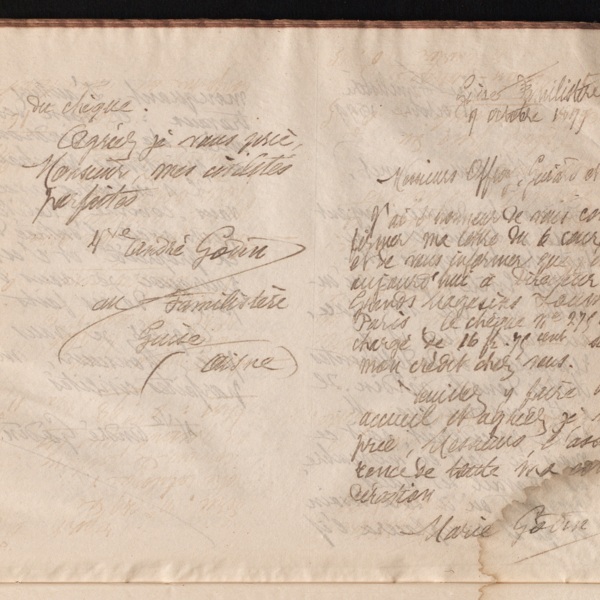 du chèque.
Agréez je vous prie,
Monsieur, mes civilités
parfaites
Vve André Godin
au Familistère
Guise
(Aisne)
Guise Familistère
9 octobre 1899
Messieurs Offroy, Guiard et
J'ai l'honneur de vous con
firmer ma lettre du 6 cour
et de vous informer que
aujourd'hui à
Grands Magasins
Paris le chèque n°
chargé de 16 fr. 75 cent
mon crédit chez vous.
Veuillez y faire
accueil et agréez je
prie, Messieurs, l'assu
rance de toute ma con
sidération
Marie Godin